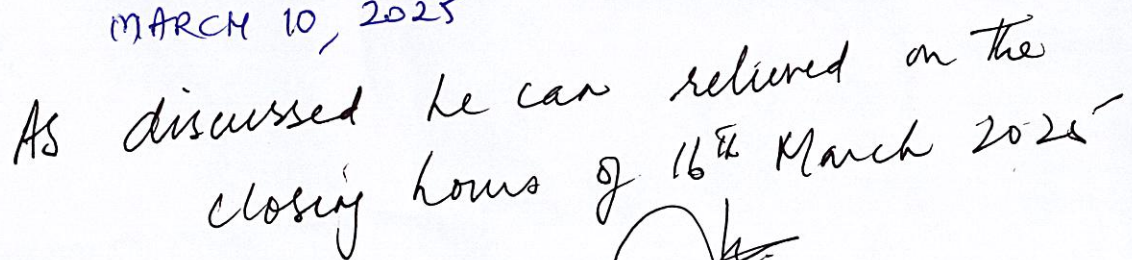 MARCH 10, 2025
As discussed he can relieved on the
closing hours of 16th March 2025